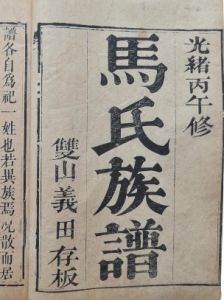 光緒丙午修
馬氏族譜
雙山義田存板
譜各自為祀一
姓也若異族焉况散而居